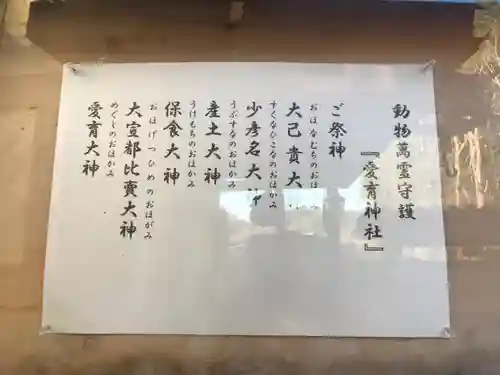 動物萬霊守護
『愛育神社』
ご祭神
おほなむちのおほかみ
大己貴大
すくなひこなのおほかみ
少彦名大神
うぶすなのおほかみ
産土大神
うけもちのおほかみ
保食大神
おほげつひめのおほがみ
大宣都比賣大神
めぐしのおほかみ
愛育大神